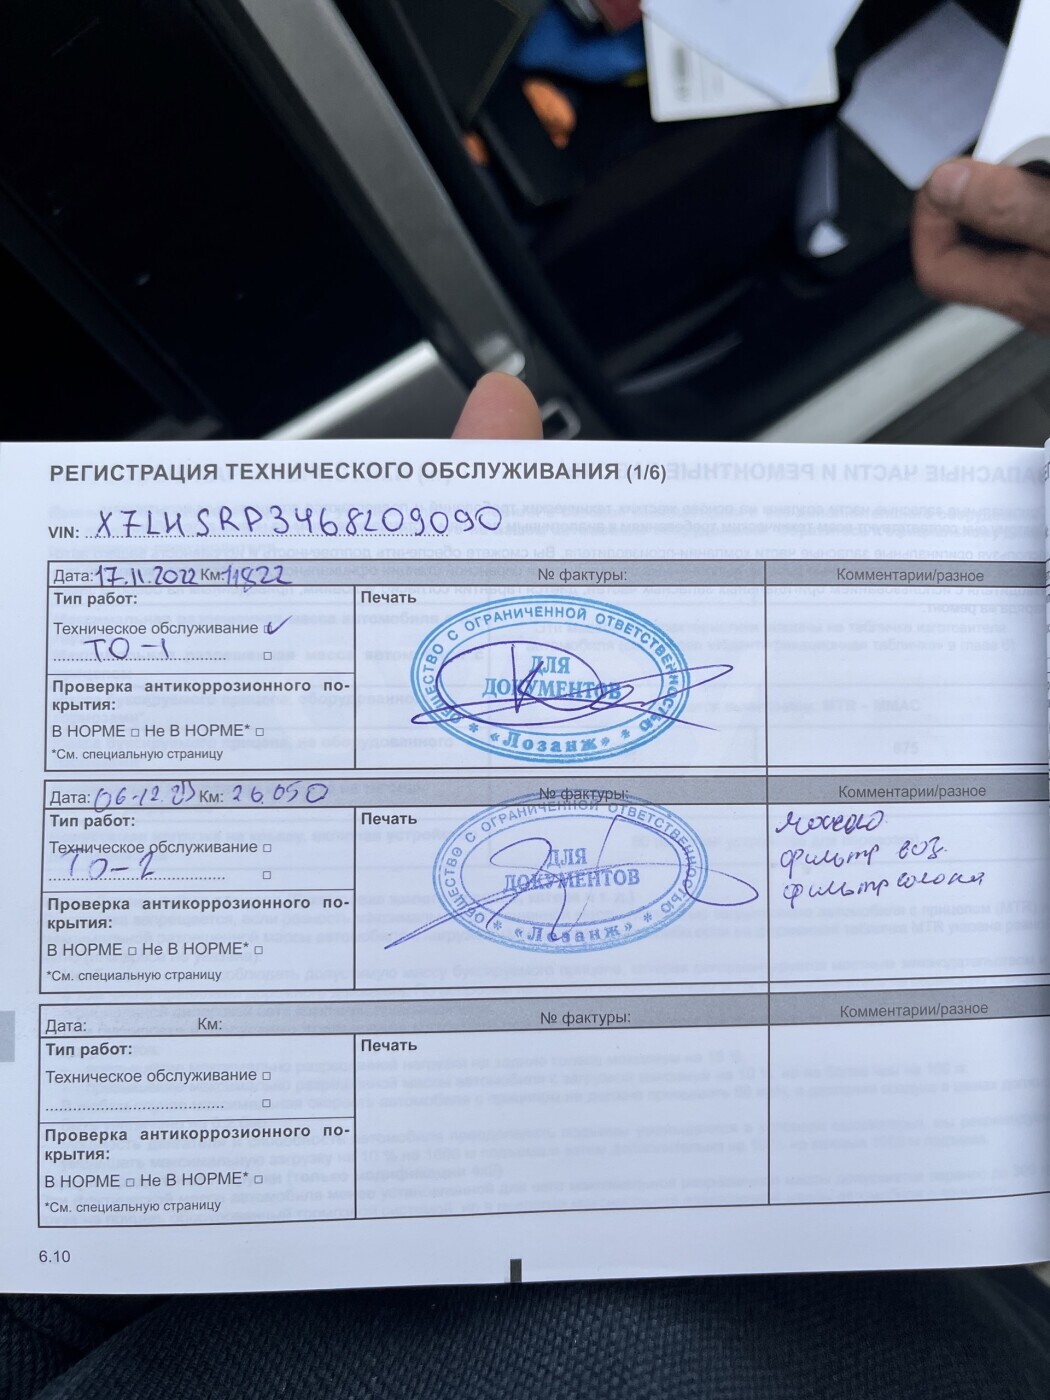 РЕГИСТРАЦИЯ ТЕХНИЧЕСКОГО ОБСЛУЖИВАНИЯ (1/6)
VIN: X7LHSRP3468209090
Дата: 17.11.2022 Км: 11822 № фактуры: Комментарии/разное
Тип работ:
Печать
Техническое обслуживание
ТО-1
Проверка антикоррозионного по-
крытия:
В НОРМЕ □ Не В НОРМЕ* □
*См. специальную страницу
ОБЩЕСТВО С ОГРАНИЧЕННОЙ ОТВЕТСТВЕННОСТЬЮ
ДЛЯ
ДОКУМЕНТОВ
* «Лозанж» *
Дата: 06.12.23 Км: 26.050 № фактуры: Комментарии/разное
Тип работ:
Печать
Техническое обслуживание □
ТО-2 □
Проверка антикоррозионного по-
крытия:
В НОРМЕ □ Не В НОРМЕ* □
*См. специальную страницу
ОБЩЕСТВО С ОГРАНИЧЕННОЙ ОТВЕТСТВЕННОСТЬЮ
ДЛЯ
ДОКУМЕНТОВ
* «Лозанж» *
фильтр воз.
фильтр салона
Дата: Км: № фактуры: Комментарии/разное
Тип работ:
Печать
Техническое обслуживание □
□
Проверка антикоррозионного по-
крытия:
В НОРМЕ □ Не В НОРМЕ* □
*См. специальную страницу
6.10